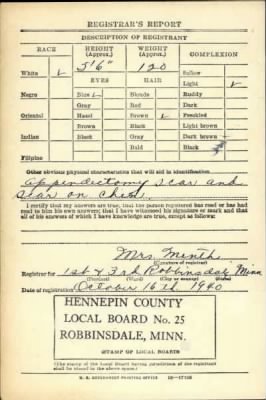 REGISTRAR'S REPORT
DESCRIPTION OF REGISTRANT
RACE HEIGHT (Approx.) WEIGHT (Approx.) COMPLEXION
5'6" 120
White ✓ Sallow
EYES HAIR Light ✓
Negro Blue ✓ Blonde Ruddy
Gray Red Dark
Oriental Hazel Brown ✓ Freckled
Brown Black Light brown
Indian Black Gray Dark brown
Bald Black
Filipino
Other obvious physical characteristics that will aid in identification
appendectomy scar and
scar on chest.
I certify that my answers are true; that the person registered has read or has had
read to him his own answers; that I have witnessed his signature or mark and that
all of his answers of which I have knowledge are true, except as follows:
Mrs.
(Signature of registrar)
Registrar for 1st & 3rd Robbinsdale Minn
(Precinct) (Ward) (City or county) (State)
Date of registration October 16th 1940
HENNEPIN COUNTY
LOCAL BOARD No. 25
ROBBINSDALE, MINN.
(STAMP OF LOCAL BOARD)
(The stamp of the Local Board having jurisdiction of the registrant
shall be placed in the above space.)
U. S. GOVERNMENT PRINTING OFFICE